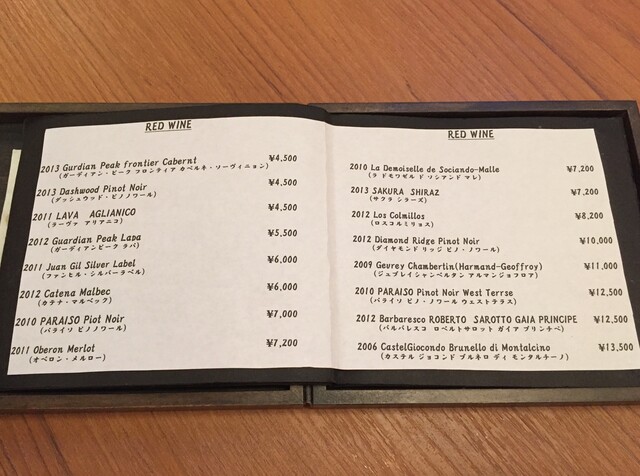 RED WINE
2013 Gurdian Peak frontier Cabernt ¥4,500
(ガーディアン・ピーク フロンティア カベルネ・ソーヴィニョン)
2013 Dashwood Pinot Noir ¥4,500
(ダッシュウッド・ピノノワール)
2011 LAVA AGLIANICO ¥4,500
(ラーヴァ アリアニコ)
2012 Guardian Peak Lapa ¥5,500
(ガーディアンピーク ラパ)
2011 Juan Gil Silver Label ¥6,000
(ファンヒル・シルバーラベル)
2012 Catena Malbec ¥6,000
(カテナ・マルベック)
2010 PARAISO Piot Noir ¥7,000
(パライソ ピノノワール)
2011 Oberon Merlot ¥7,200
(オベロン・メルロー)
RED WINE
2010 La Demoiselle de Sociando-Malle ¥7,200
(ラ ドモワゼル ド ソシアンド マレ)
2013 SAKURA SHIRAZ ¥7,200
(サクラ シラーズ)
2012 Los Colmillos ¥8,200
(ロスコルミリョス)
2012 Diamond Ridge Pinot Noir ¥10,000
(ダイヤモンド リッジ ピノ・ノワール)
2009 Gevrey Chambertin(Harmand-Geoffroy) ¥11,000
(ジェブレイシャンベルタン アルマンジョフロア)
2010 PARAISO Pinot Noir West Terrse ¥12,500
(パライソ ピノ・ノワール ウェストテラス)
2012 Barbaresco ROBERTO SAROTTO GAIA PRINCIPE ¥12,500
(バルバレスコ ロベルトサロット ガイア プリンキペ)
2006 CastelGiocondo Brunello di Montalcino ¥13,500
(カステル ジョコンド ブルネロ ディ モンタルチーノ)